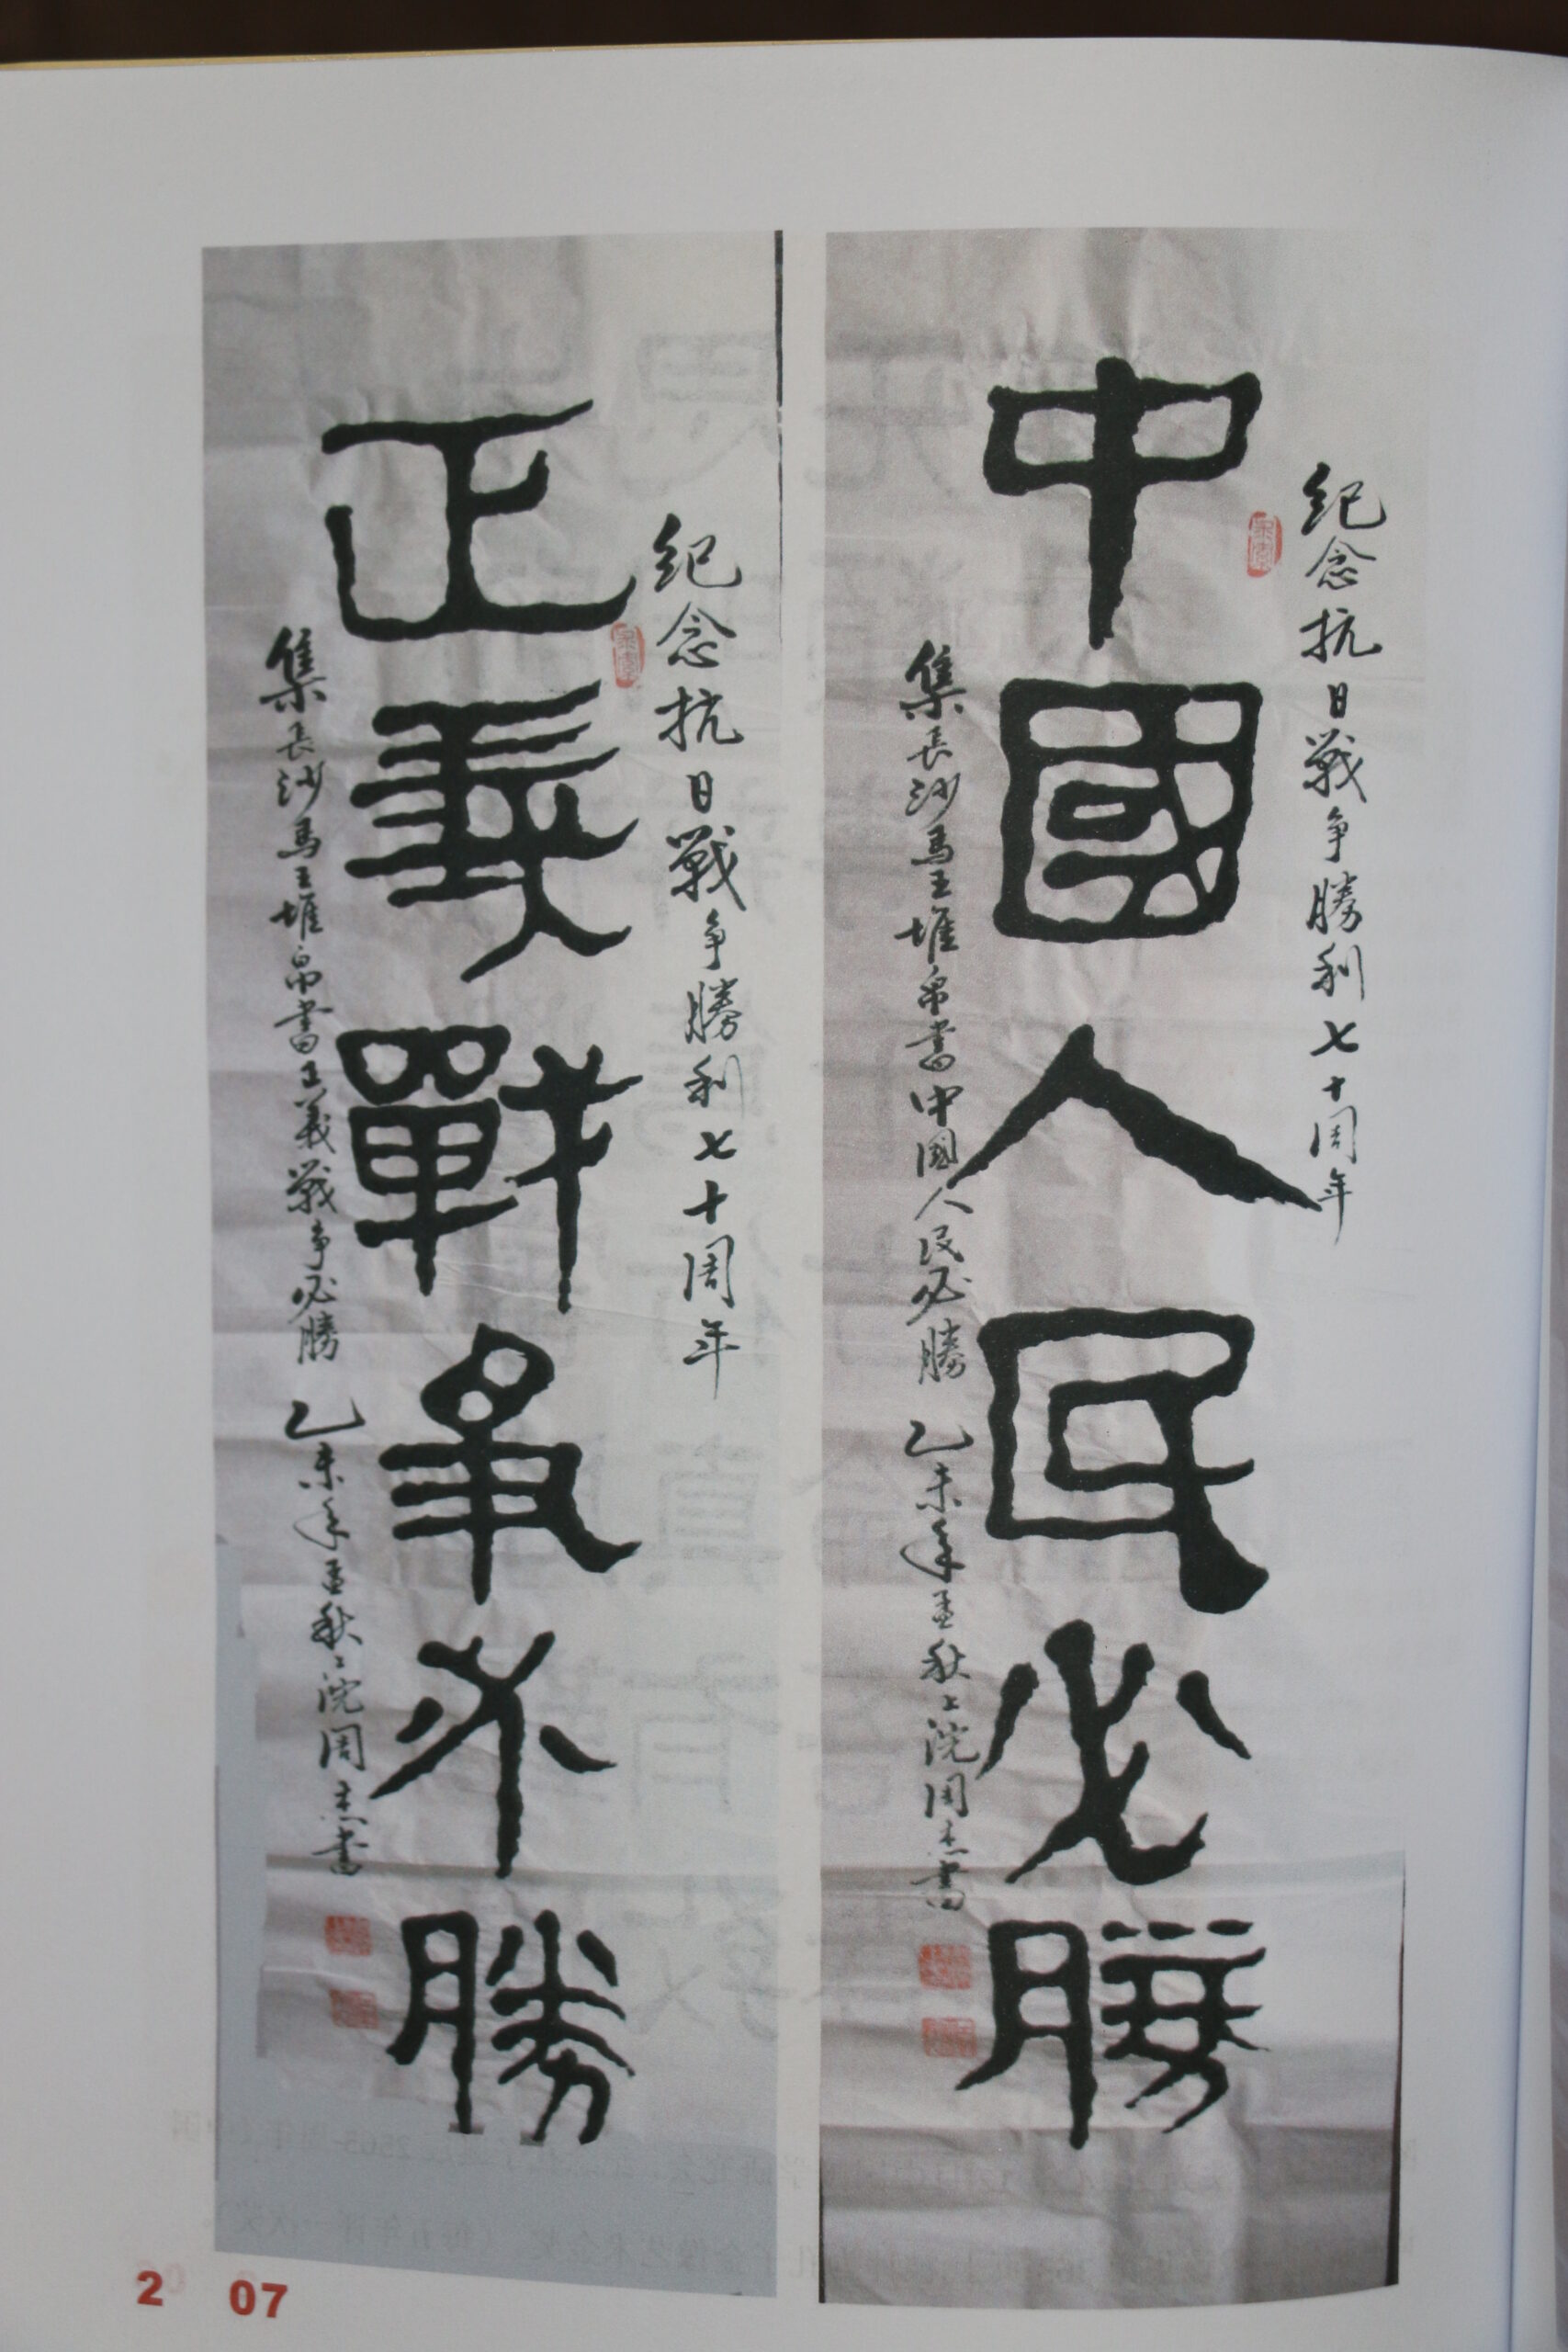 紀念抗日戰争勝利七十周年
中國人民必勝
集長沙馬王堆帛書中國人民必勝 乙未年孟秋上浣周杰書
紀念抗日戰争勝利七十周年
正義戰爭必勝
集長沙馬王堆帛書正義戰争必勝 乙未年孟秋上浣周杰書
2 07